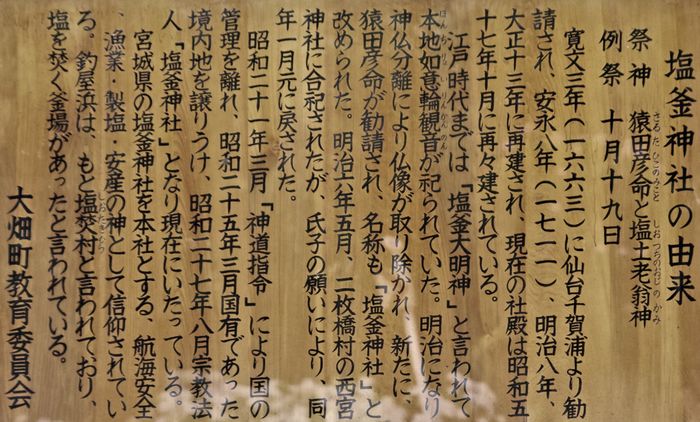 塩釜神社の由来
祭神　猿田彦命と塩土老翁神
例祭　十月十九日
寛文三年（一六六三）に仙台千賀浦より勧
請され、安永八年（一七一一）、明治八年、
大正十三年に再建され、現在の社殿は昭和五
十七年十月に再々建されている。
江戸時代までは「塩釜大明神」と言われて
本地如意輪観音が祀られていた。明治になり
神仏分離により仏像が取り除かれ、新たに、
猿田彦命が勧請され、名称も「塩釜神社」と
改められた。明治六年五月、二枚橋村の西宮
神社に合祀されたが、氏子の願いにより、同
年一月元に戻された。
昭和二十一年三月「神道指令」により国の
管理を離れ、昭和二十五年三月国有であった
境内地を譲りうけ、昭和二十七年八月宗教法
人「塩釜神社」となり現在にいたっている。
宮城県の塩釜神社を本社とする、航海安全
、漁業・製塩・安産の神として信仰されてい
る。釣屋浜は、もと塩焚村と言われており、
塩を焚く釜場があったと言われている。
大畑町教育委員会